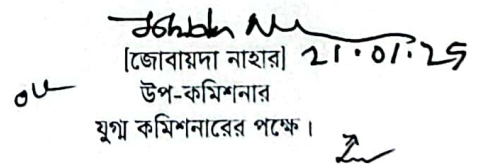 [জোবায়দা নাহার] 21.01.25
উপ-কমিশনার
যুগ্ম কমিশনারের পক্ষে।